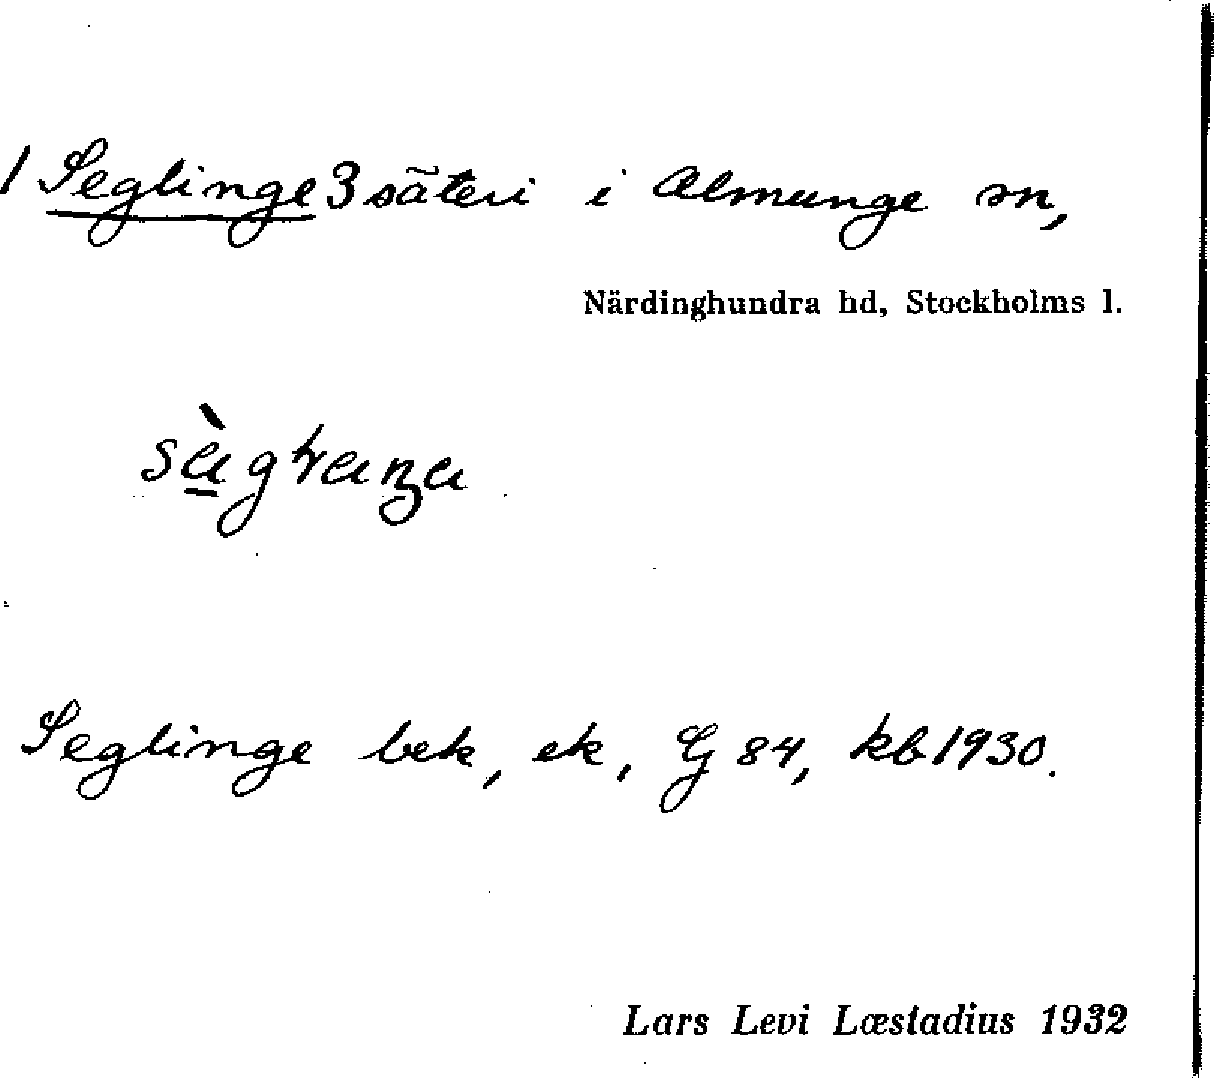 1 Seglinge 3 säteri i Almunge sn,
Närdinghundra hd, Stockholms l.
Seglinge bek, ek, G 84, kb 1930.
Lars Levi Læstadius 1932